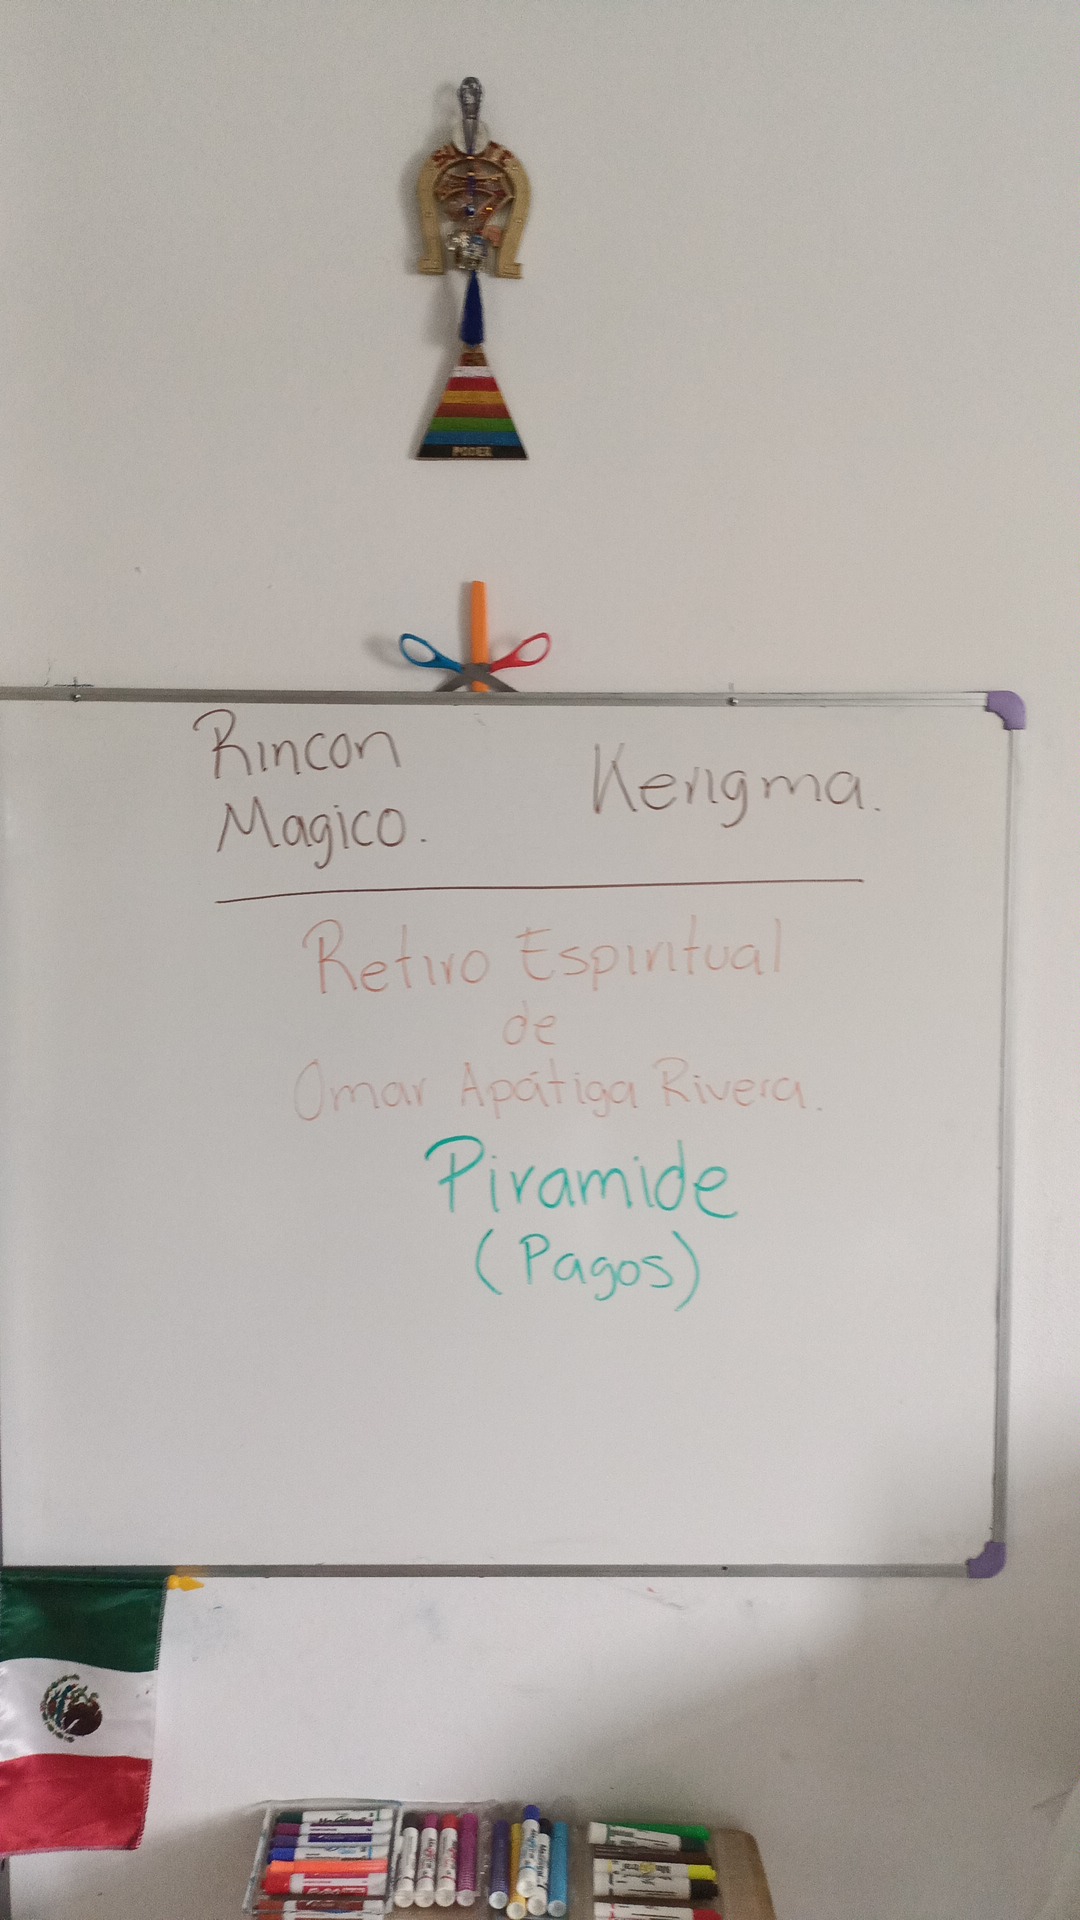 PODER
Rincon
Magico.
Kengma.
Retiro Espiritual
de
Omar Apátiga Rivera.
Piramide
(Pagos)